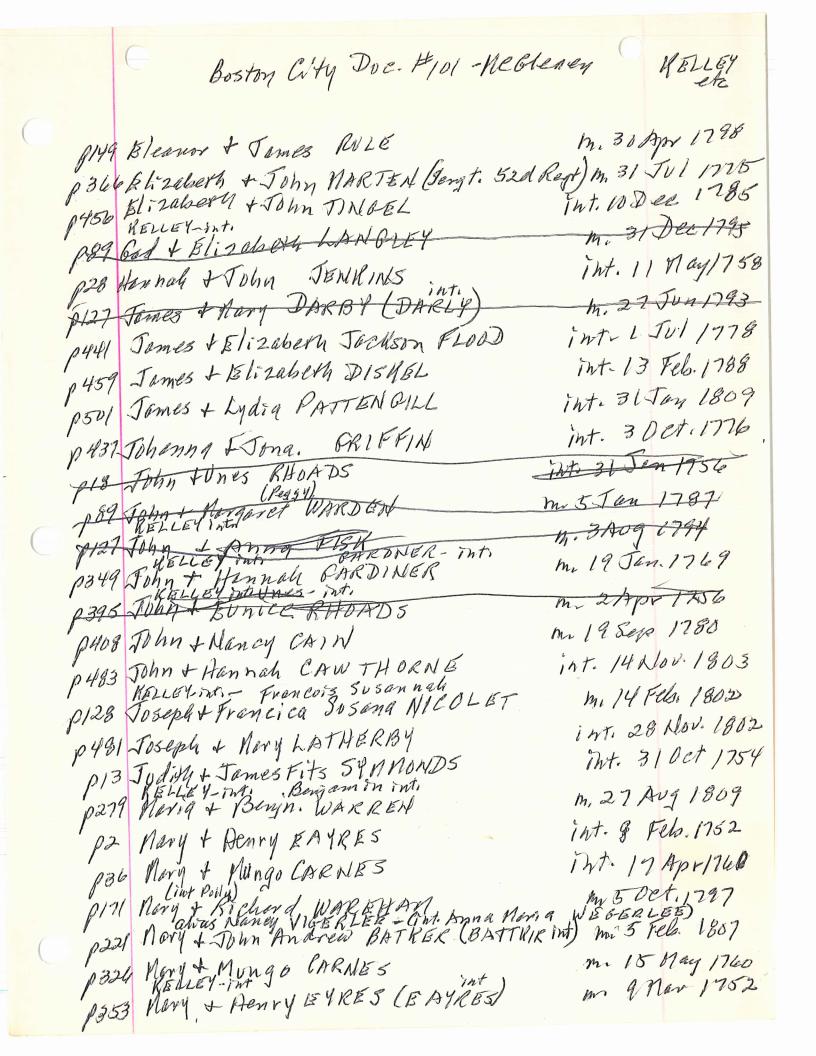 Boston City Doc. #101 - McGlenen KELLEY
etc
p149 Eleanor + James RULE m. 30 Apr 1798
p366 Elizabeth + John MARTEN (Sergt. 52d Regt) m. 31 Jul 1775
p456 Elizabeth + John TINGEL int. 10 Dec 1785
KELLEY-int.
p89 Gad + Elizabeth LANGLEY m. 31 Dec 1795
p28 Hannah + John JENKINS int. 11 May 1758
int.
p127 James + Mary DARBY (DARLY) m. 27 Jun 1793
p441 James + Elizabeth Jackson FLOOD int. 1 Jul 1778
p459 James + Elizabeth DISKEL int. 13 Feb. 1788
p501 James + Lydia PATTENGILL int. 31 Jan 1809
p437 Johanna + Jona. GRIFFIN int. 3 Oct. 1776
p18 John + Unes RHOADS int. 31 Jan 1756
(Peggy)
p89 John + Margaret WARDEN m. 5 Jan 1787
KELLEY int.
p127 John + Anna FISK m. 3 Aug 1794
KELLEY int. GARDNER - int.
p349 John + Hannah GARDINER m. 19 Jan. 1769
KELLEY int. Unes - int.
p395 John + Eunice RHOADS m. 2 Apr 1756
p408 John + Nancy CAIN m. 19 Sep 1780
p483 John + Hannah CAWTHORNE int. 14 Nov. 1803
KELLEY-int. - Francois Susannah
p128 Joseph + Francica Susana NICOLET m. 14 Feb. 1802
p481 Joseph + Mary LATHERBY int. 28 Nov. 1802
p13 Judith + James Fits SYMMONDS int. 31 Oct 1754
KELLEY-int. Benjamin int.
p279 Maria + Benjn. WARREN m. 27 Aug 1809
p2 Mary + Henry EAYRES int. 8 Feb. 1752
p36 Mary + Mungo CARNES int. 17 Apr 1760
(int Polly)
p171 Mary + Richard WAREHAM m 5 Oct. 1797
alias Nancy VIGERLEE - (int. Anna Maria WEGERLEE)
p221 Mary + John Andrew BATKER (BATTKIR int) m. 5 Feb. 1807
p326 Mary + Mungo CARNES m. 15 May 1760
KELLEY-int int
p353 Mary + Henry EYRES (EAYRES) m. 9 Mar 1752